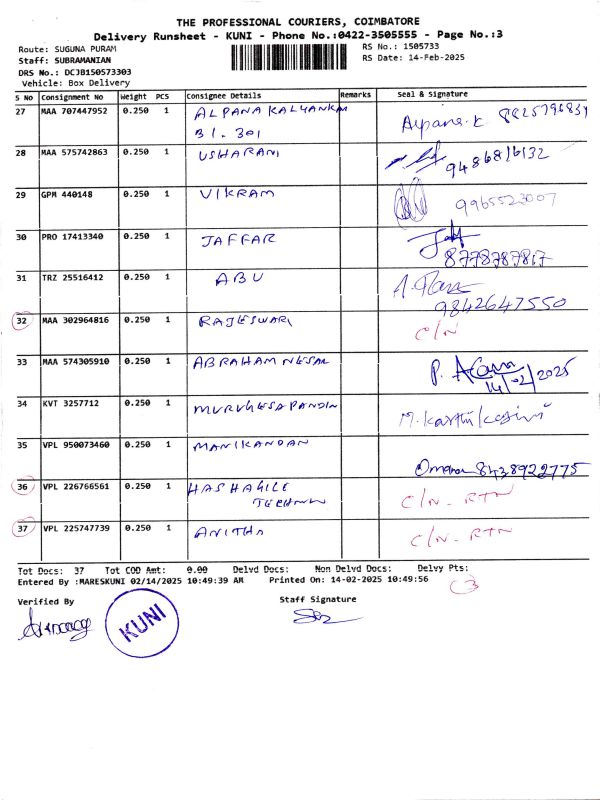 THE PROFESSIONAL COURIERS, COIMBATORE
Delivery Runsheet - KUNI - Phone No.:0422-3505555 - Page No.:3
Route: SUGUNA PURAM
RS No.: 1505733
Staff: SUBRAMANIAN
RS Date: 14-Feb-2025
DRS No.: DCJB150573303
Vehicle: Box Delivery
S No Consignment No Weight PCS Consignee Details Remarks Seal & Signature
27 MAA 707447952 0.250 1 ALPANA KALYANKAR Alpana.K
B1.301
28 MAA 575742863 0.250 1 USHARANI 9486816132
29 GPM 440148 0.250 1 VIKRAM 9965523007
30 PRO 17413340 0.250 1 JAFFAR 8778787817
31 TRZ 25516412 0.250 1 ABU 9842647550
32 MAA 302964816 0.250 1 RAJESWARI C/N
33 MAA 574305910 0.250 1 ABRAHAM NESAL P. 14/02/2025
34 KVT 3257712 0.250 1 MURUGESA PANDIN M.
35 VPL 950073460 0.250 1 MANIKANDAN 8438922775
36 VPL 226766561 0.250 1 HASHAGILE C/N-RTN
37 VPL 225747739 0.250 1 ANITHA C/N-RTN
Tot Docs: 37 Tot COD Amt: 0.00 Delvd Docs: Non Delvd Docs: Delvy Pts:
Entered By :MARESKUNI 02/14/2025 10:49:39 AM Printed On: 14-02-2025 10:49:56
3
Verified By Staff Signature
KUNI